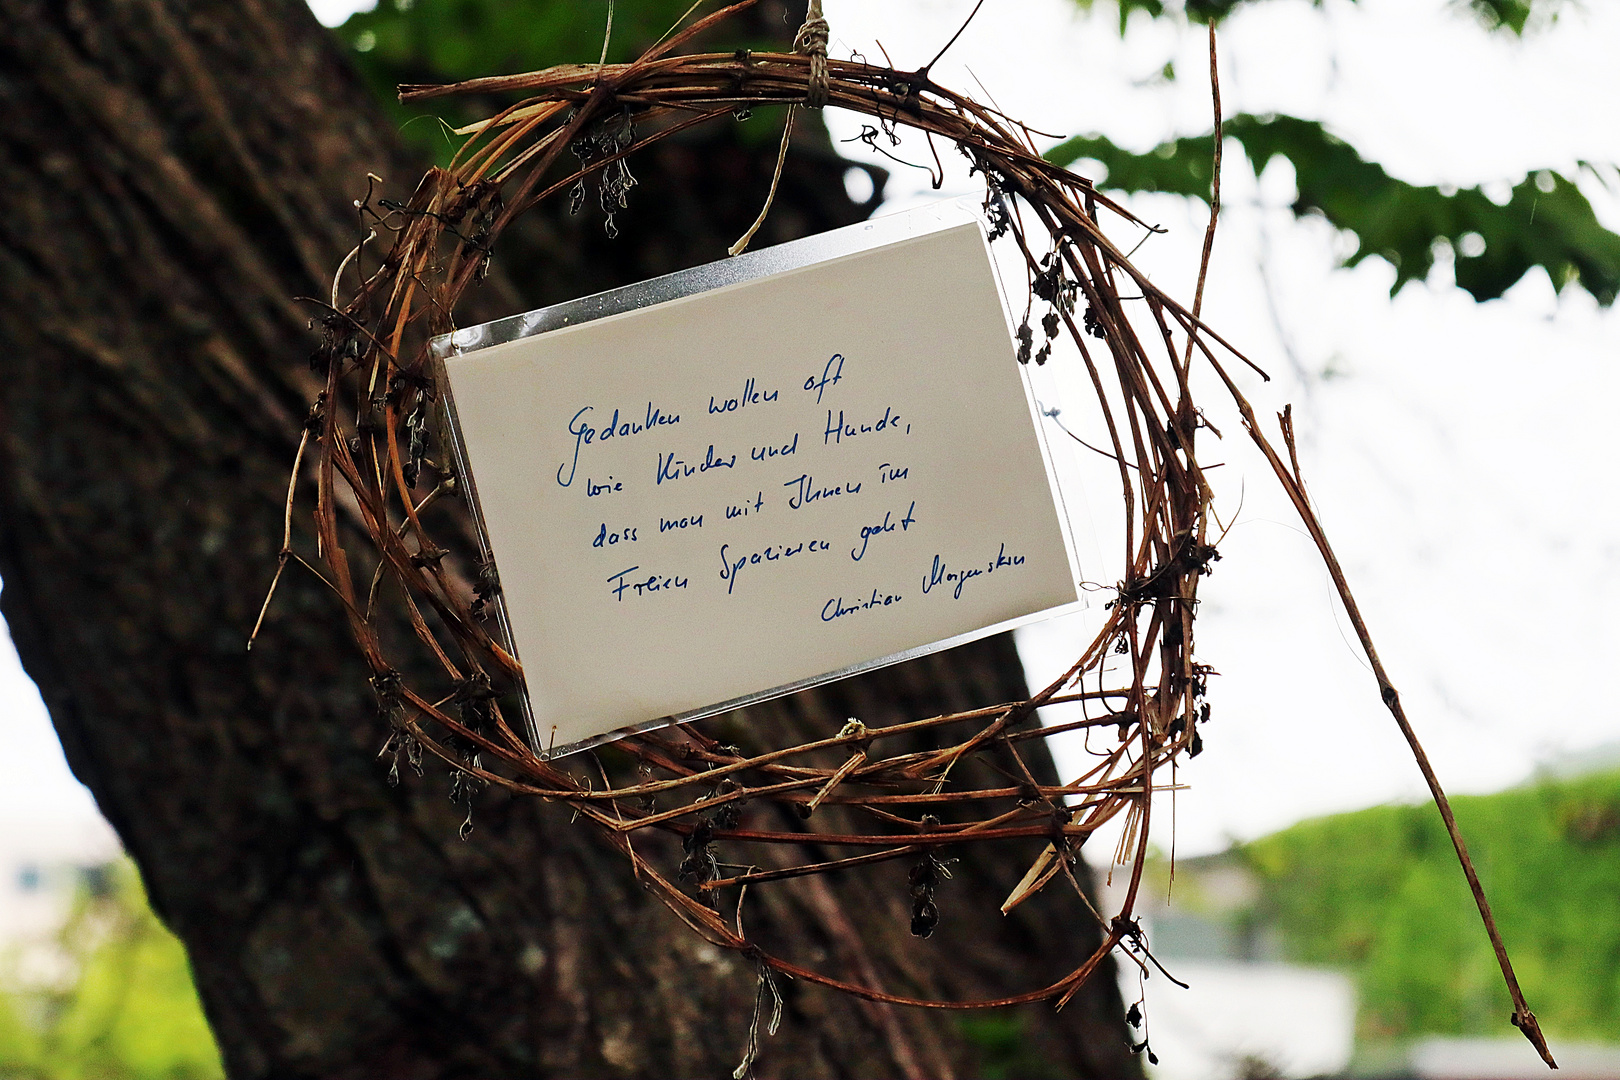 Gedanken wollen oft
wie Kinder und Hunde,
dass man mit Ihnen im
Freien Spazieren geht
Christian Morgenstern